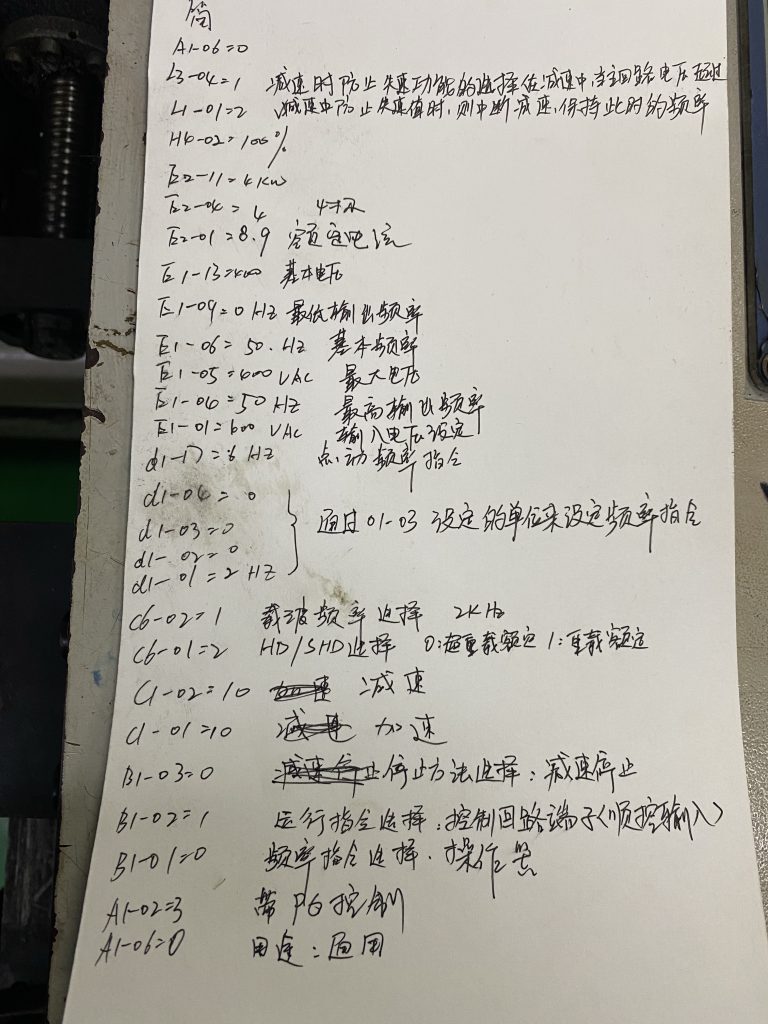 简
A1-06=0
L3-04=1 减速时防止失速功能的选择 在减速中,当主回路电压超过
L1-01=2 减速中防止失速值时,则中断减速,保持此时的频率
H4-02=100%
E2-11=4KW
E2-04=4 4极
E2-01=8.9 额定电流
E1-13=400 基本电压
E1-09=0HZ 最低输出频率
E1-06=50.HZ 基本频率
E1-05=400VAC 最大电压
E1-04=50HZ 最高输出频率
E1-01=400 VAC 输入电压设定
d1-17=6HZ 点动频率指令
d1-04=0
d1-03=0 通过01-03设定的单位来设定频率指令
d1-02=0
d1-01=2HZ
C6-02=1 载波频率选择 2KHz
C6-01=2 HD/SHD选择 0:超重载额定 1:重载额定
C1-02=10 减速
C1-01=10 加速
B1-03=0 停止方法选择:减速停止
B1-02=1 运行指令选择:控制回路端子(顺控输入)
B1-01=0 频率指令选择.操作器
A1-02=3 带PG控制
A1-06=0 用途:通用